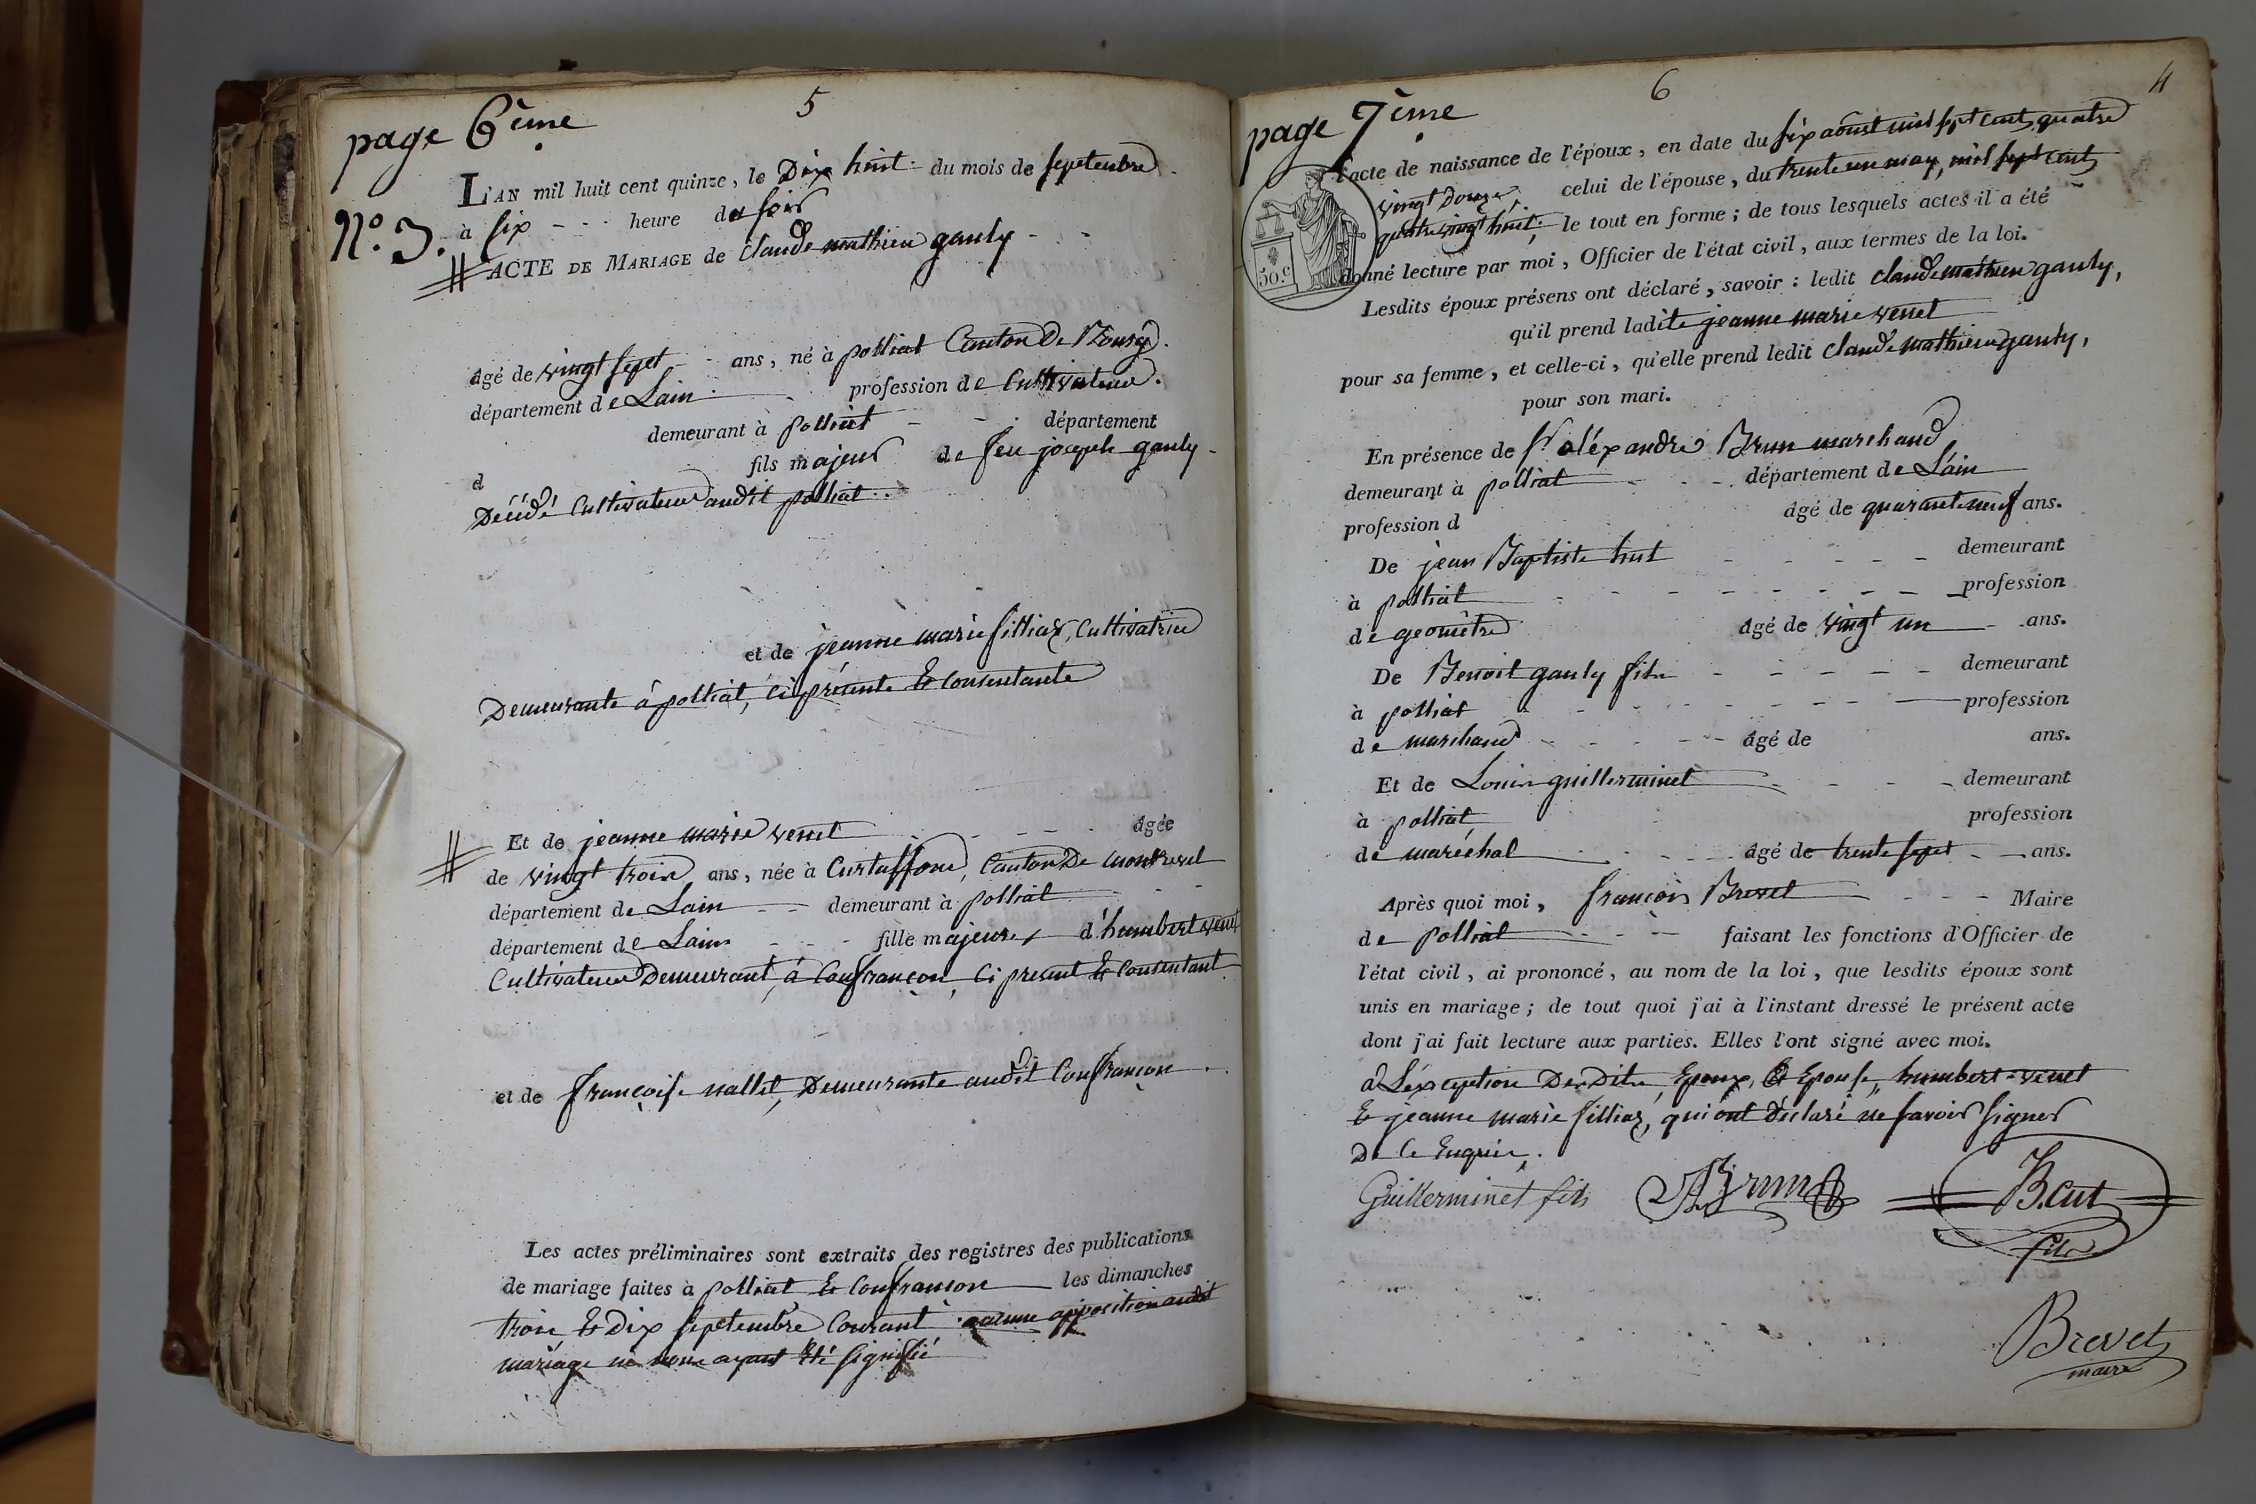 page 6ème
5
L'AN mil huit cent quinze, le Dix huit du mois de septembre
N°. 3. à six heure du soir
ACTE DE MARIAGE de claude mathieu gauly
âgé de vingt sept ans, né à polliat Canton De Bourg.
département de Lain profession de Cultivateur.
demeurant à polliat département
d fils majeur de feu joseph gauly
Décédé Cultivateur audit polliat
et de jeanne marie silliaz, Cultivatrice
Demeurante à polliat, ci présente & consentante
Et de jeanne marie venet âgée
de vingt trois ans, née à Curtaffond, Canton De montrevel
département de Lain demeurant à polliat
département de Lain fille majeure d'humbert venet
Cultivateur Demeurant à Confrançon, Ci present & Consentant
et de françoise nallet, Demeurante audit Confrançon.
Les actes préliminaires sont extraits des registres des publications
de mariage faites à polliat & Confrançon les dimanches
trois & Dix septembre Courant aucune opposition audit
mariage ne nous ayant été signifié
page 7ème
6
4
l'acte de naissance de l'époux, en date du six aôust mil sept cent quatre
vingt Douze, celui de l'épouse, du trente un may, mil sept cent
quatre vingt huit, le tout en forme; de tous lesquels actes il a été
donné lecture par moi, Officier de l'état civil, aux termes de la loi.
50.c
Lesdits époux présens ont déclaré, savoir: ledit claude mathieu gauly,
qu'il prend ladite jeanne marie venet
pour sa femme, et celle-ci, qu'elle prend ledit claude mathieu gauly,
pour son mari.
En présence de Sr aléxandre Brun marchand
demeurant à polliat département de L'ain
profession d âgé de quarante neuf ans.
De jean Baptiste hut demeurant
à polliat profession
de geomètre âgé de vingt un ans.
De Benoit gauly fils demeurant
à polliat profession
de marchand âgé de ans.
Et de Louis guillerminet demeurant
à polliat profession
de maréchal âgé de trente sept ans.
Après quoi moi, françois Brevet Maire
de polliat faisant les fonctions d'Officier de
l'état civil, ai prononcé, au nom de la loi, que lesdits époux sont
unis en mariage; de tout quoi j'ai à l'instant dressé le présent acte
dont j'ai fait lecture aux parties. Elles l'ont signé avec moi.
à L'éxception Desdits, Epoux, & Epouse, humbert venet
& jeanne marie silliaz, qui ont Déclaré ne savoir signer
De ce Enquis.
Guillerminet fils ABrun B. Cut
fils
Brevet
maire